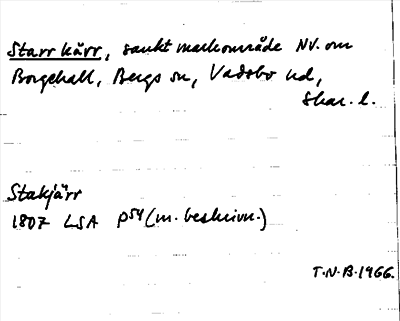 Starrkärr, sankt markområde NV. om
Borgehall, Bergs sn, Vadsbo hd,
Skar. l.
Stakjärr
1807 LSA P54 (m. beskrivn.)
T.N.B. 1966.